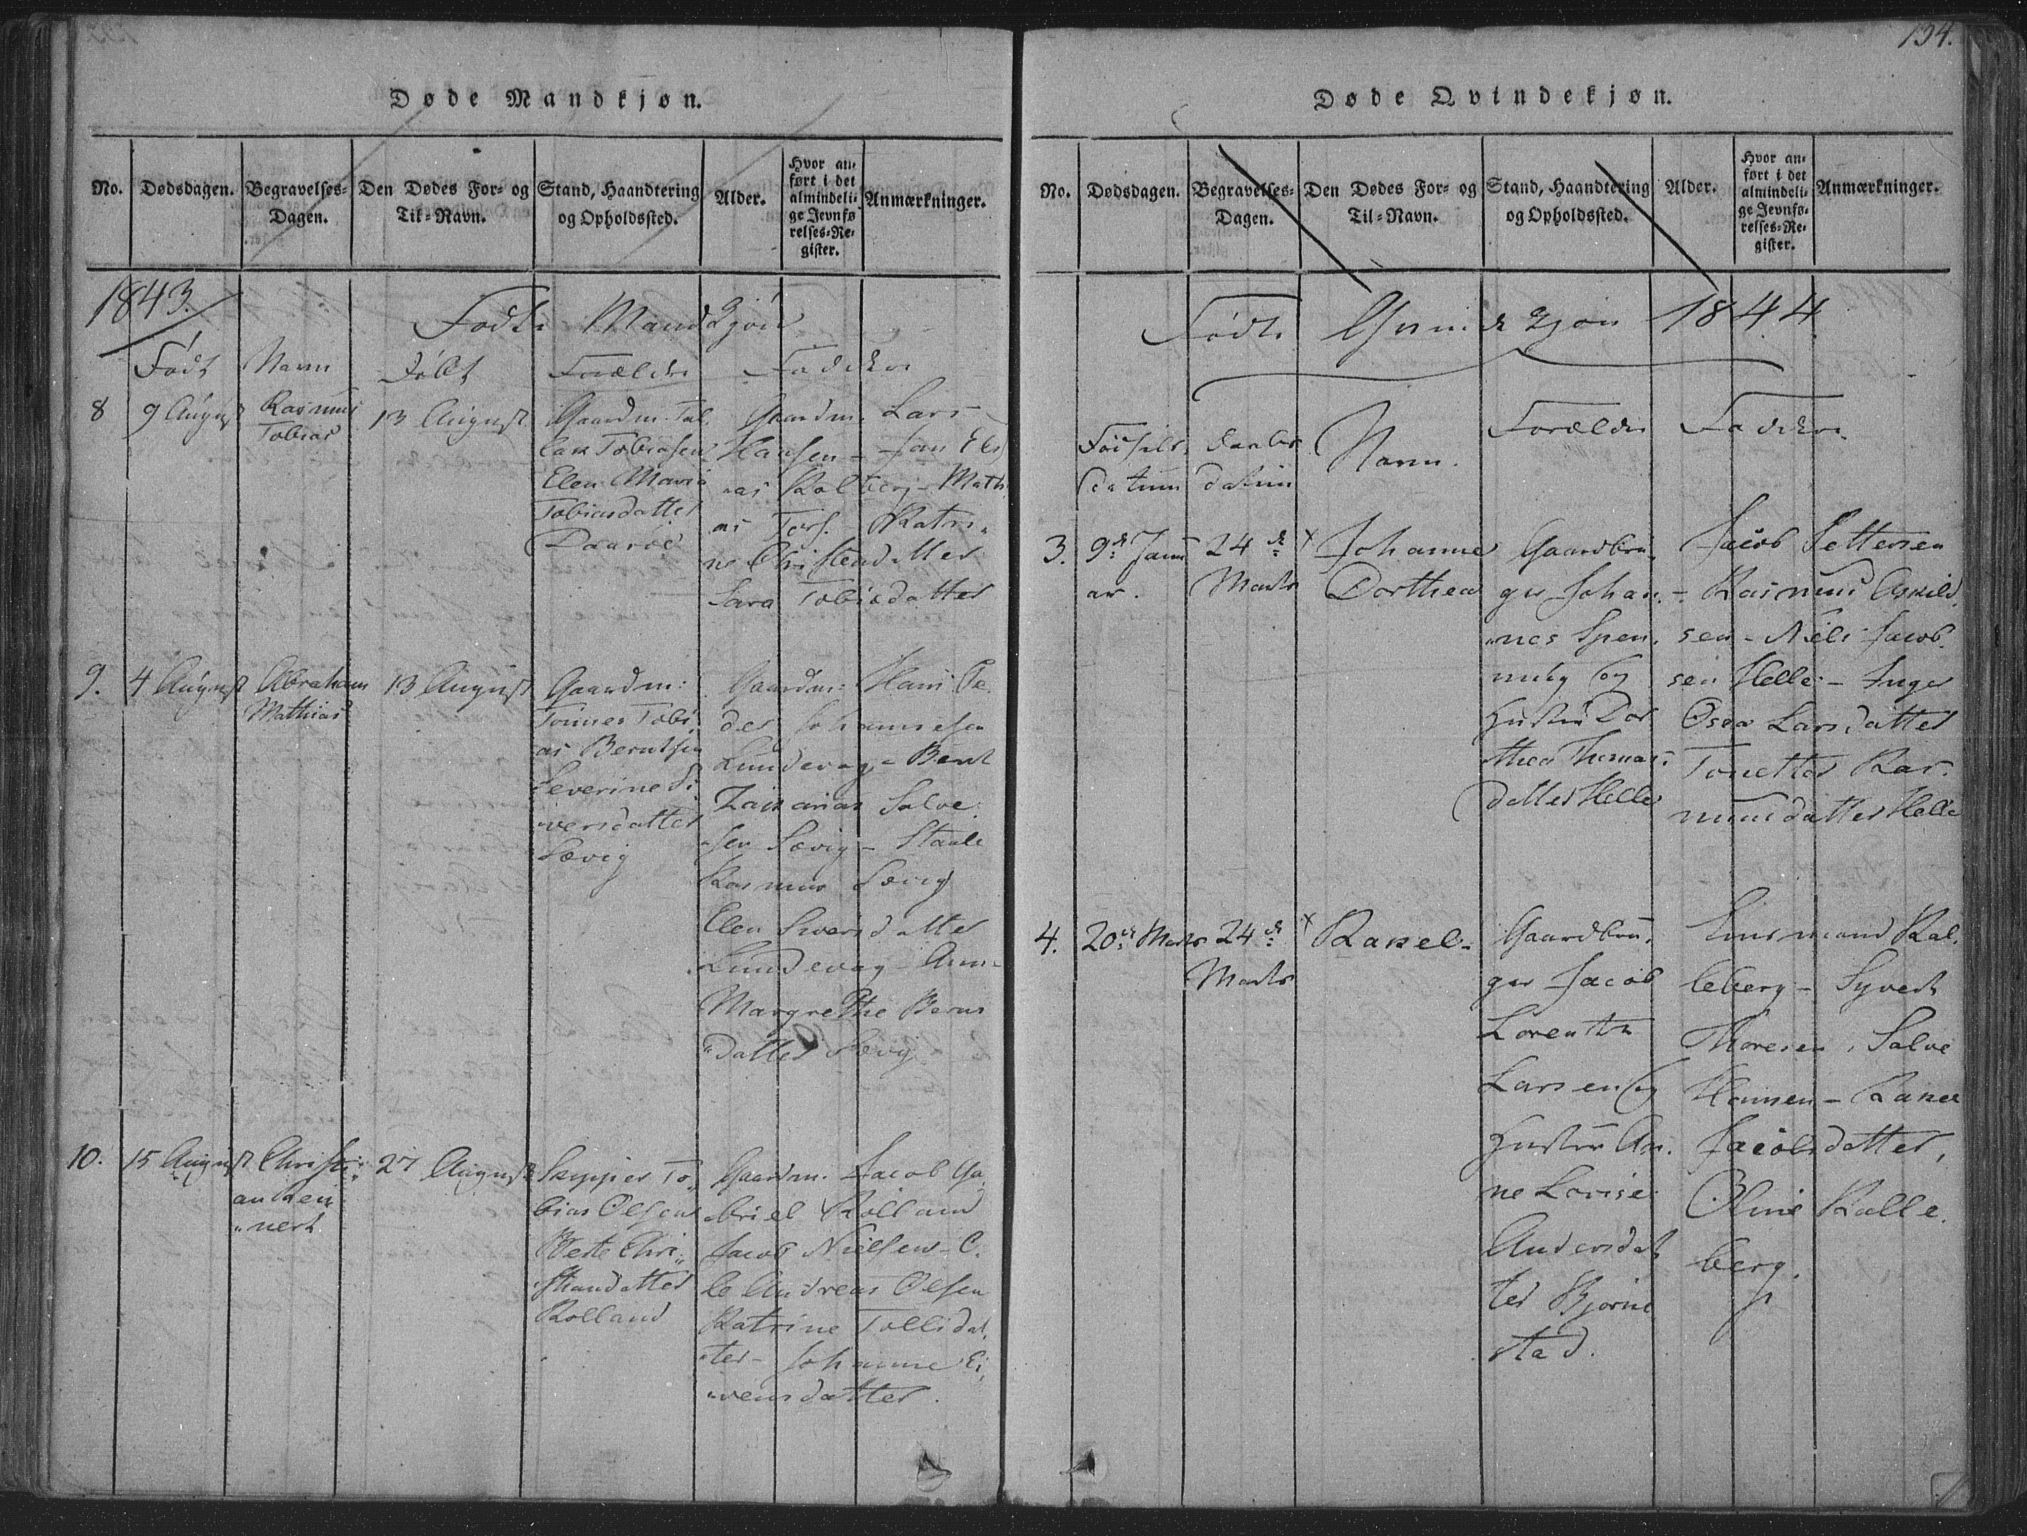 Døde Mandkjøn.
No.
Dødsdagen.
Begravelses-
Dagen.
Den Dødes For- og
Til-Navn.
Stand, Haandtering
og Opholdssted.
Alder.
Hvor an-
ført i det
almindeli-
ge Jevnfø
relses-Re-
gister.
Anmærkninger.
1843.
Født Mandkjøn
Født Navn Døbt Forældre Faddere
8
9 August
Rasmus
Tobias
13 August
Gaardm. Tal
lak Tobiasen
Elen Maria
Tobiasdatter
Gaardm. Lars
Hansen - Jan Eli
as Kolberg - Math
as Ters. - Katri-
ne Christendatter
Sara Tobisdatter
9.
4 August
Abraham
Mathias
13 August
Gaardm:
Tønnes Tobi
as Berntsen
Severine Si
versdatter
Sævig
Gaardm: Hans Pe
der Johannesen
Lundevag - Bernt
Zakarias Salve
sen Sævig - Staale
Rasmus Sævig
Elen Siversdatter
Lundevag - Ann
Margrethe Berns
datter Sævig
10.
15 August
Christi
an Rei
nert
27 August
Skipper To
bias Olsen
Chri
standatter
Rolland
Gaardm. Jacob Ga
briel Rolland
Jacob Nielsen - O
le Andreas Olsen
Katrine Tollisdat
ter - Johanne Ei
vensdatter.
134.
Døde Qvindekjøn.
No.
Dødsdagen.
Begravelses-
Dagen.
Den Dødes For- og
Til-Navn.
Stand, Haandtering
og Opholdssted.
Alder.
Hvor an-
ført i det
almindeli-
ge Jevnfø-
relses-Re-
gister.
Anmærkninger.
Født Qvindekjøn 1844.
Fødsels
datum
Daabs
datum
Navn.
Forældre
Faddere.
3.
9de Janu
ar.
24de
Marts
Johanne
Dorthea
Gaardbru
ger Johan
nes Spen
og
Hustru Dor
thea Thomas
datter Helle
Jacob Pettersen
- Rasmus Askild
sen - Niels Jacob
sen Helle - Inger
Osea Larsdatter
Tonette Ras
musdatter Helle
4.
20de Marts
24de
Marts
Rakel -
Gaardbru
ger Jacob
Lorentz
Larsen og
Hustru An
ne Lovise
Andersdat
ter Bjørne
stad.
Kal
leberg - Syvert
Thoresen, Salve
Hansen - Rakel
Jacobsdatter,
Oline Kalle
berg.